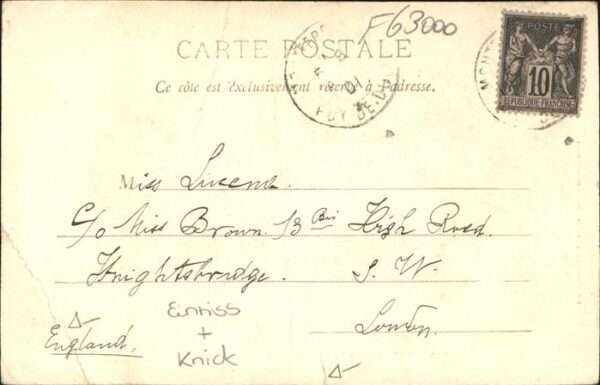 F63000
CARTE POSTALE
POSTE
10
REPUBLIQUE FRANÇAISE
MONT
01
PUY DE D
Ce côté est exclusivement réservé à l'adresse.
Miss Lucena.
c/o Miss Brown. 13 Bis High Road.
Knightsbridge. S. W.
London.
England.
Einriss
+
Knick